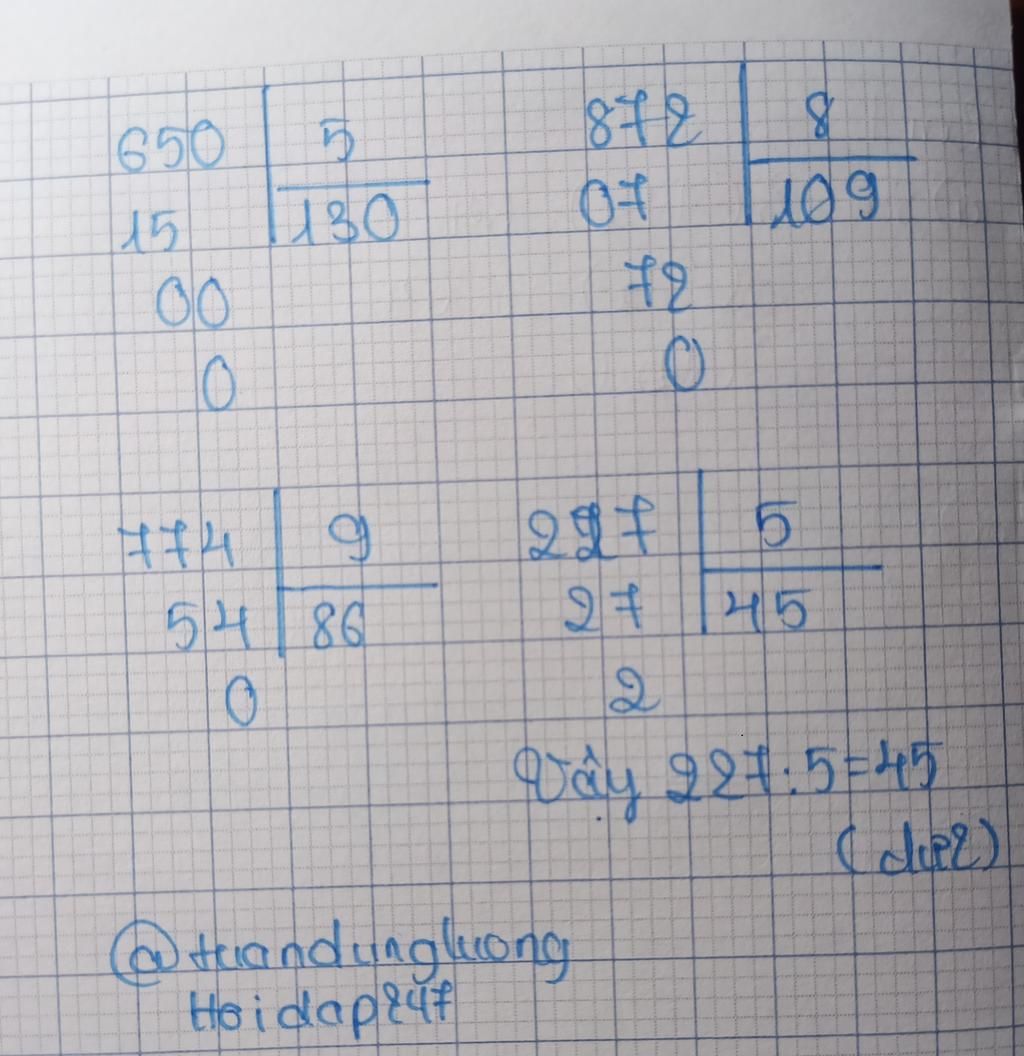 650 5
15 130
00
0
872 8
07 109
72
0
774 9
54 86
0
227 5
27 45
2
Vậy 227:5=45
(dư2)
@tuandungluong
Hoidap247